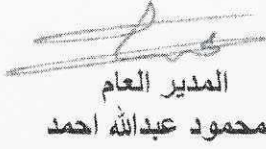 المدير العام
محمود عبدالله احمد